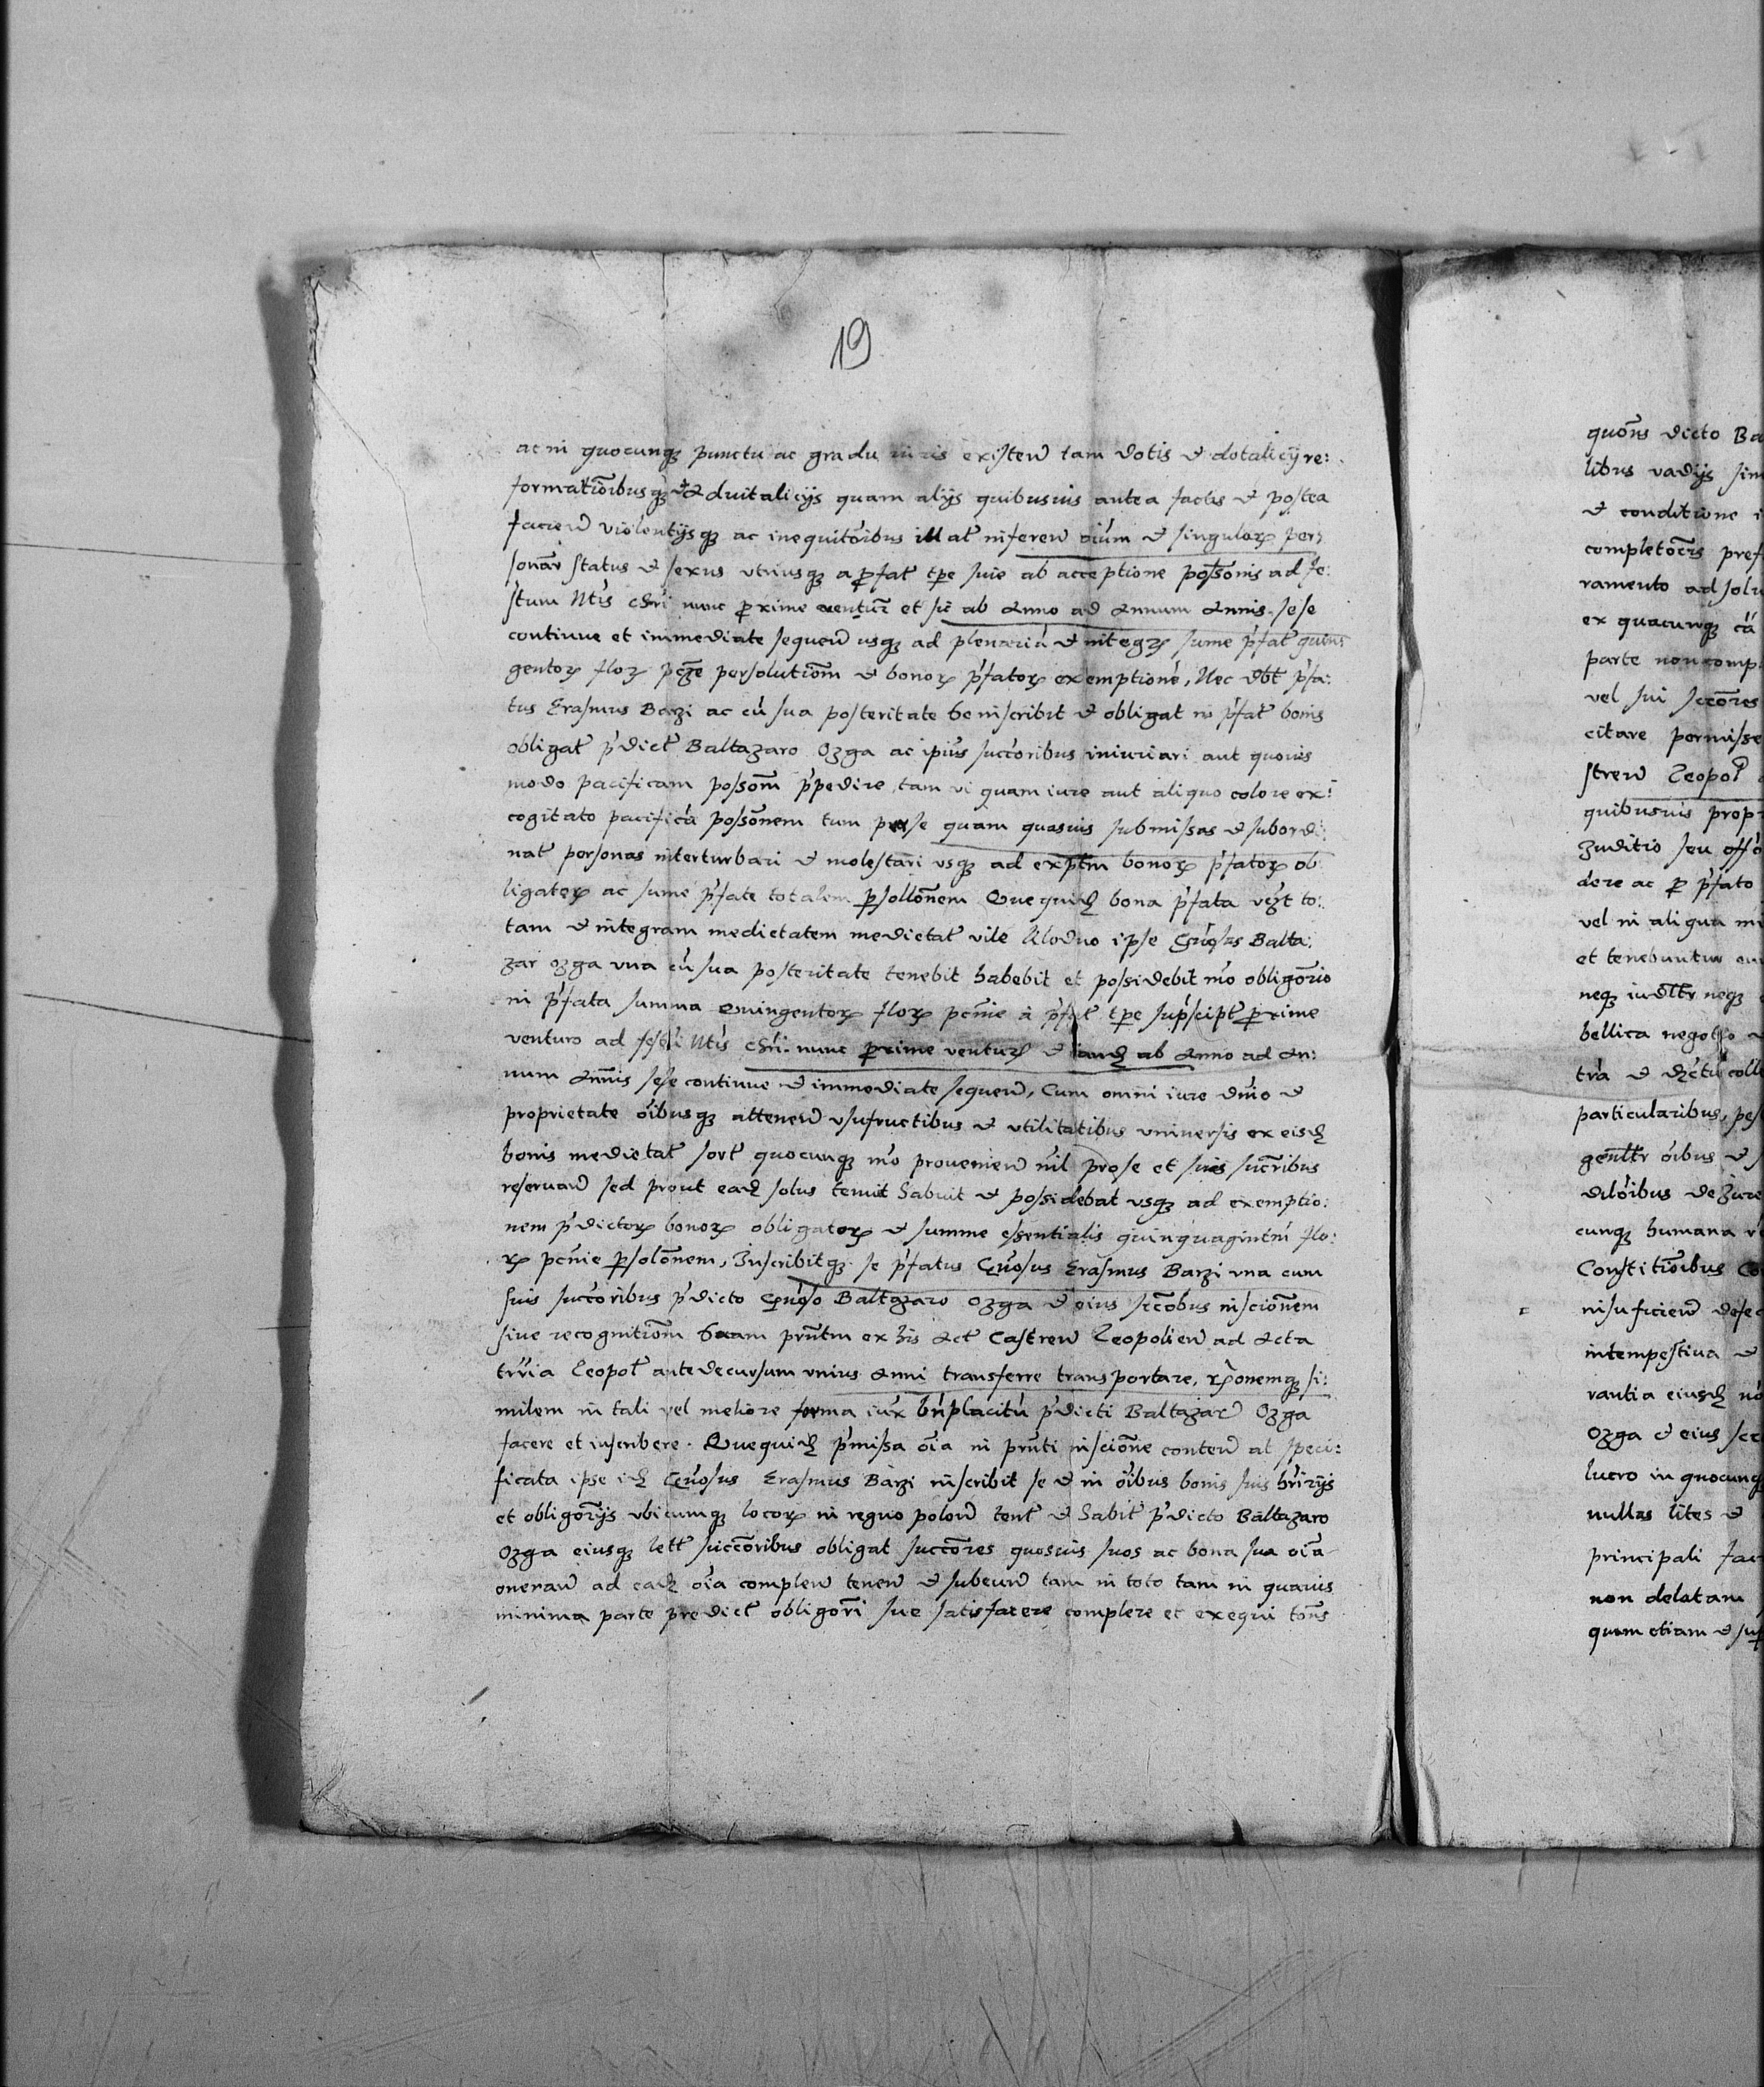 19
ac in quocunqꝫ punctu ac gradu iuris existeñ tam dotis et dotalicij re:
formatiõibusqꝫ et duitalicijs quam alijs quibusuis antea factis et postea
facieñ violentijsqꝫ ac inequitõribus illat̃ infereñ oiũm et singuloꝝ per:
sonar̃ status et sexus vtriusqꝫ a p̃fat̃ tp̃e siue ab acceptione possõnis ad fe:
stum Ntis chri nunc proxime ventur̃ et sic ab Anno ad Annum Annis sese
continue et immediate sequeñ usqꝫ ad plenariũ et integrꝫ sume p̃fat̃ quin:
gentoꝝ floꝝ pcze persolutiom̃ et bonoꝝ p̃fatoꝝ exemptionẽ, Nec dbt̃ p̃fa:
tus Erasmus Barzi ac cũ sua posteritate se inscribit et obligat in p̃fat̃ bonis
obligat̃ p̃dict̃ Baltazaro Ozga ac ip̃ius succõribus iniuriari aut quouis
modo pacificam possom̃ p̃pedire, tam vi quam iure aut aliquo colore ex:
cogitato pacificã possõnem tum per se quam quasuis submissas et subordi:
nat̃ personas interturbari et molestari vsqꝫ ad exptm̃ bonoꝝ p̃fatoꝝ ob
ligatoꝝ ac sume p̃fate totalem p̃sollõnem Quequidꝫ bona p̃fata vezt to:
tam et integram medietatem medietat̃ vile Uloduo ipse Gñosus Balta:
zar Ozga vna cũ sua posteritate tenebit habebit et possidebit mõ obligõrio
in p̃fata summa Quingentoꝝ floꝝ pcnie à p̃fat̃ tp̃e sup̃script̃ proxime
venturo ad festũ Ntis chri. nunc proxime venturꝫ et iandꝫ ab Anno ad An:
num Annis sese continue et immediate sequeñ, Cum omni iure dñio et
proprietate oĩbusqꝫ atteneñ vsufructibus et vtilitatibus vniuersis ex eisdꝫ
bonis medietat̃ sort̃ quocunqꝫ mõ prouenieñ nĩl pro se et suis sucr̃ibus
reseruañ sed prout eadꝫ solus tenuit habuit et possidebat vsqꝫ ad exemptio:
nem p̃dictoꝝ bonoꝝ obligatoꝝ et summe essentialis quinquagintni flo:
ꝝ pcnie p̃solõnem, Inscribitqꝫ se p̃fatus Gñosus Erasmus Barzi vna cum
suis succõribus p̃dicto Gñoso Baltazaro Ozga et eius sccõbus inscionẽm
siue recognitiom̃ suam prñtm ex his Act̃ Castreñ Leopolieñ ad Acta
trria Leopol̃ ante decursum vnius Anni transferre transportare, rp̃onemqꝫ si:
milem in tali vel meliore forma iux̃ bñplacitũ p̃dicti Baltazar̃ Ozga
facere et inscribere. Quequidꝫ p̃missa oĩa in prñti inscionẽ conteñ at speci:
ficata ipse idꝫ Gñosus Erasmus Barzi inscribit se et in oĩbus bonis suis hr̃irijs
et obligõrijs vbicumqꝫ locoꝝ in regno poloñ tent̃ et habit̃ p̃dicto Baltazaro
Ozga eiusqꝫ lett̃ succcõribus obligat succõres quosuis suos ac bona sua oĩa
onerañ ad eadꝫ oĩa compleñ teneñ et subeuñ tam in toto tam in quauis
minima parte predict̃ obligõri sue satisfacere complere et exequi tõns
quoñs dicto Ba
libus vadijs sim
et conditione i
completõris pref
ramento ad solu
ex quacunqꝫ cã
parte non comp
vel sui sccõres
citare permisse
streñ Leopol̃
quibusuis propr
zuditio seu offo
dere ac p̃ p̃fato
vel in aliqua mi
et tenebuntur
neqꝫ iudltr neqꝫ
bellica negotio
tra et coll
particularibus, pes
genltr oĩbus et
dilõibus de Jure
cunqꝫ humana
Constitiõibus Co
insuficieñ defec
intempestiua et
rantia eiusdꝫ nõ
Ozga et eius scc
lucro in quocunq
nullas lites et
principali fac
non delatam
quam etiam et sup